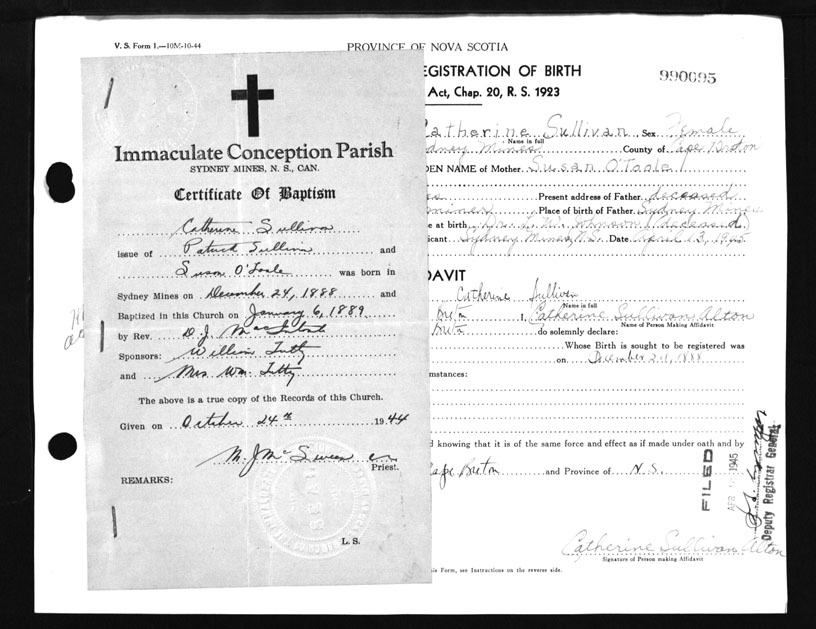 V. S. Form 1.—10M-10-44
PROVINCE OF NOVA SCOTIA
EGISTRATION OF BIRTH
990095
Act, Chap. 20, R. S. 1923
atherine Sullivan Sex Female
Name in full
dney Mines County of Cape Breton
DEN NAME of Mother Susan O'Toole
Present address of Father deceased
miner Place of birth of Father Sydney Mines
e at birth Johnson (deceased)
icant Sydney Mines N.S. Date April 13, 1945
DAVIT
Catherine Sullivan
Name in full
Breton I, Catherine Sullivan Alton
Name of Person Making Affidavit
Breton do solemnly declare:
Whose Birth is sought to be registered was
on December 24, 1888
cumstances:
d knowing that it is of the same force and effect as if made under oath and by
Cape Breton and Province of N.S.
FILED
APR 1945
Deputy Registrar General
Catherine Sullivan Alton
Signature of Person making Affidavit
is Form, see Instructions on the reverse side.
Immaculate Conception Parish
SYDNEY MINES, N. S., CAN.
Certificate Of Baptism
Catherine Sullivan
issue of Patrick Sullivan and
Susan O'Toole was born in
Sydney Mines on December 24, 1888 and
Baptized in this Church on January 6, 1889
by Rev. D. J. MacIntosh
Sponsors: William Tutty
and Mrs Wm. Tutty
The above is a true copy of the Records of this Church.
Given on October 24th 1944
M. J. McSween
Priest.
REMARKS:
SEAL
L. S.